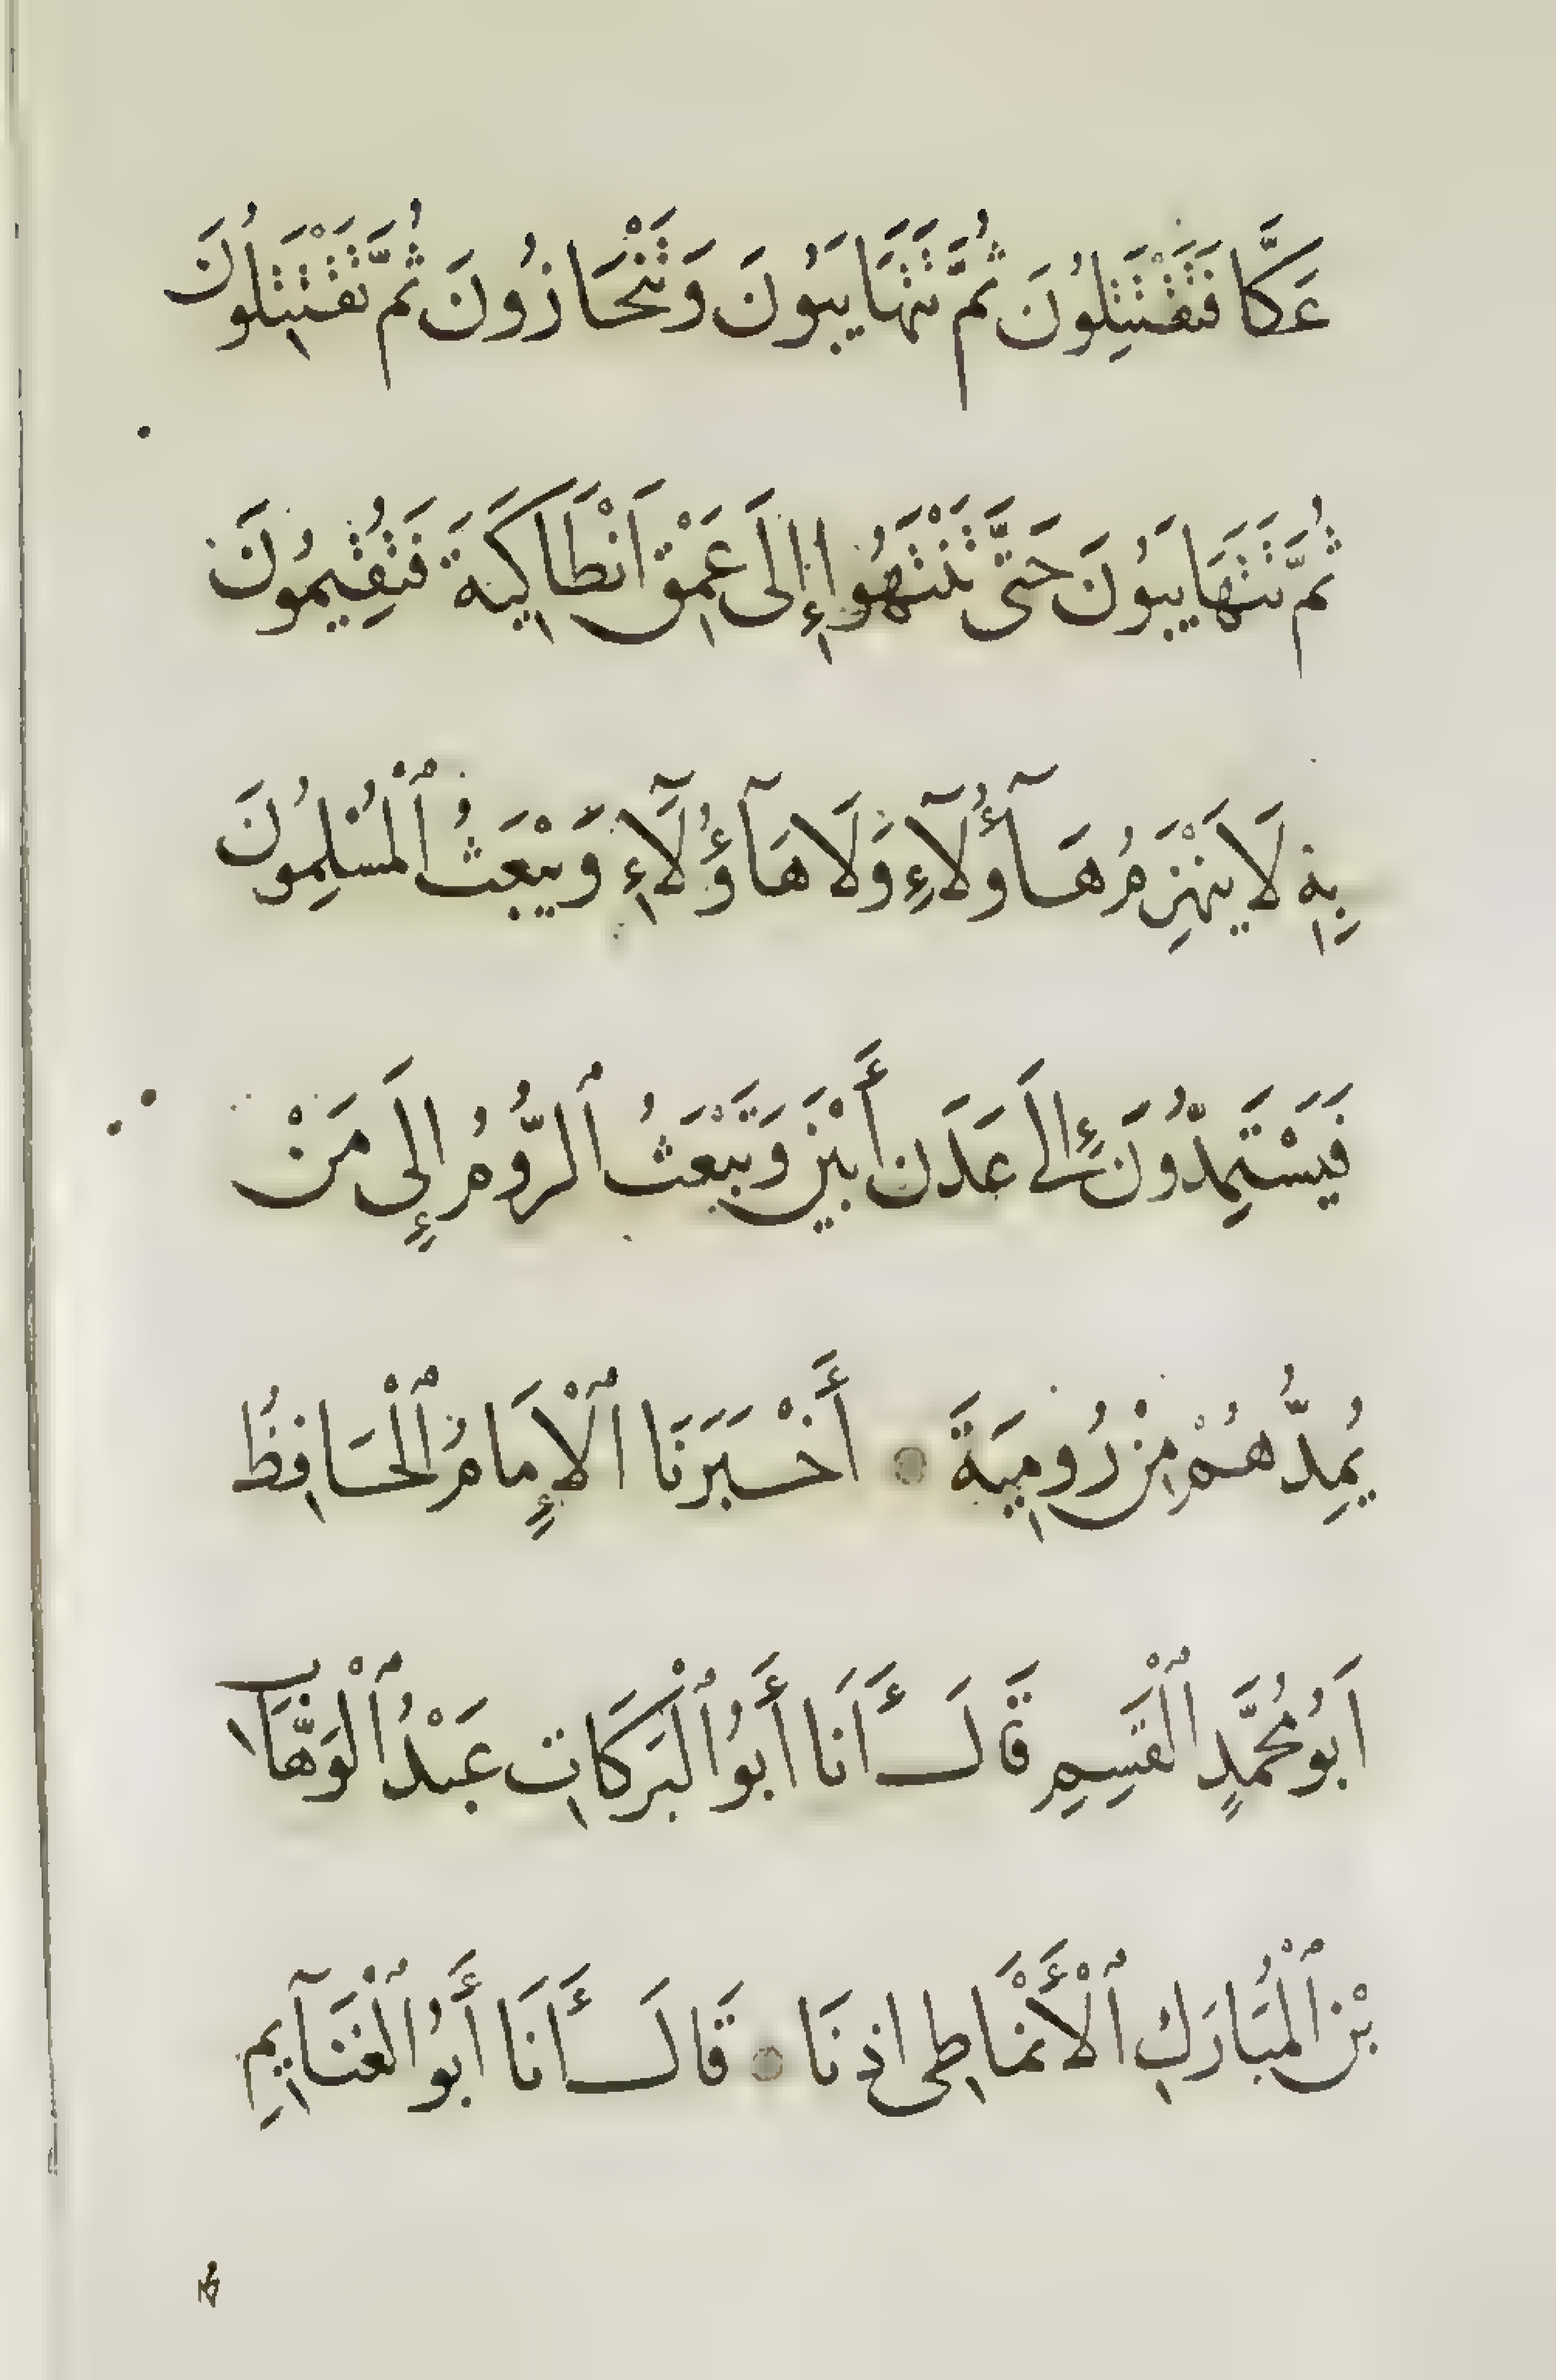 عَكَّا فَتَقْتَتِلُونَ ثُمَّ تَتَهَايَبُونَ وَتَنْحَازُونَ ثُمَّ تَقْتَتِلُونَ
ثُمَّ تَتَهَايَبُونَ حَتَّى تَنْتَهُوا إِلَى عَمْقِ اَنْطَاكِيَةَ فَتُقِيمُونَ
بِهِ لَا يَنْهَزِمُ هَآؤُلَآءِ وَلَا هَآؤُلَآءِ وَيَبْعَثُ ٱلْمُسْلِمُونَ
فَيَسْتَمِدُّونَ إِلَى عَدَن أَبْيَنَ وَتَبْعَثُ ٱلرُّومُ إِلَى مَنْ
يُمِدُّهُمْ مِنْ رُومِيَةَ أَخْبَرَنَا ٱلْإِمَامُ ٱلْحَافِظُ
اَبُو مُحَمَّدٍ ٱلْقَسِمِ قَالَ أَنَا أَبُو ٱلْبَرَكَاتِ عَبْدُ ٱلْوَهَّابِ
بْنُ ٱلْمُبَارَكِ ٱلْأَنْمَاطِي اذنَا قَالَ أَنَا أَبُو ٱلْغَنَآيِمِ